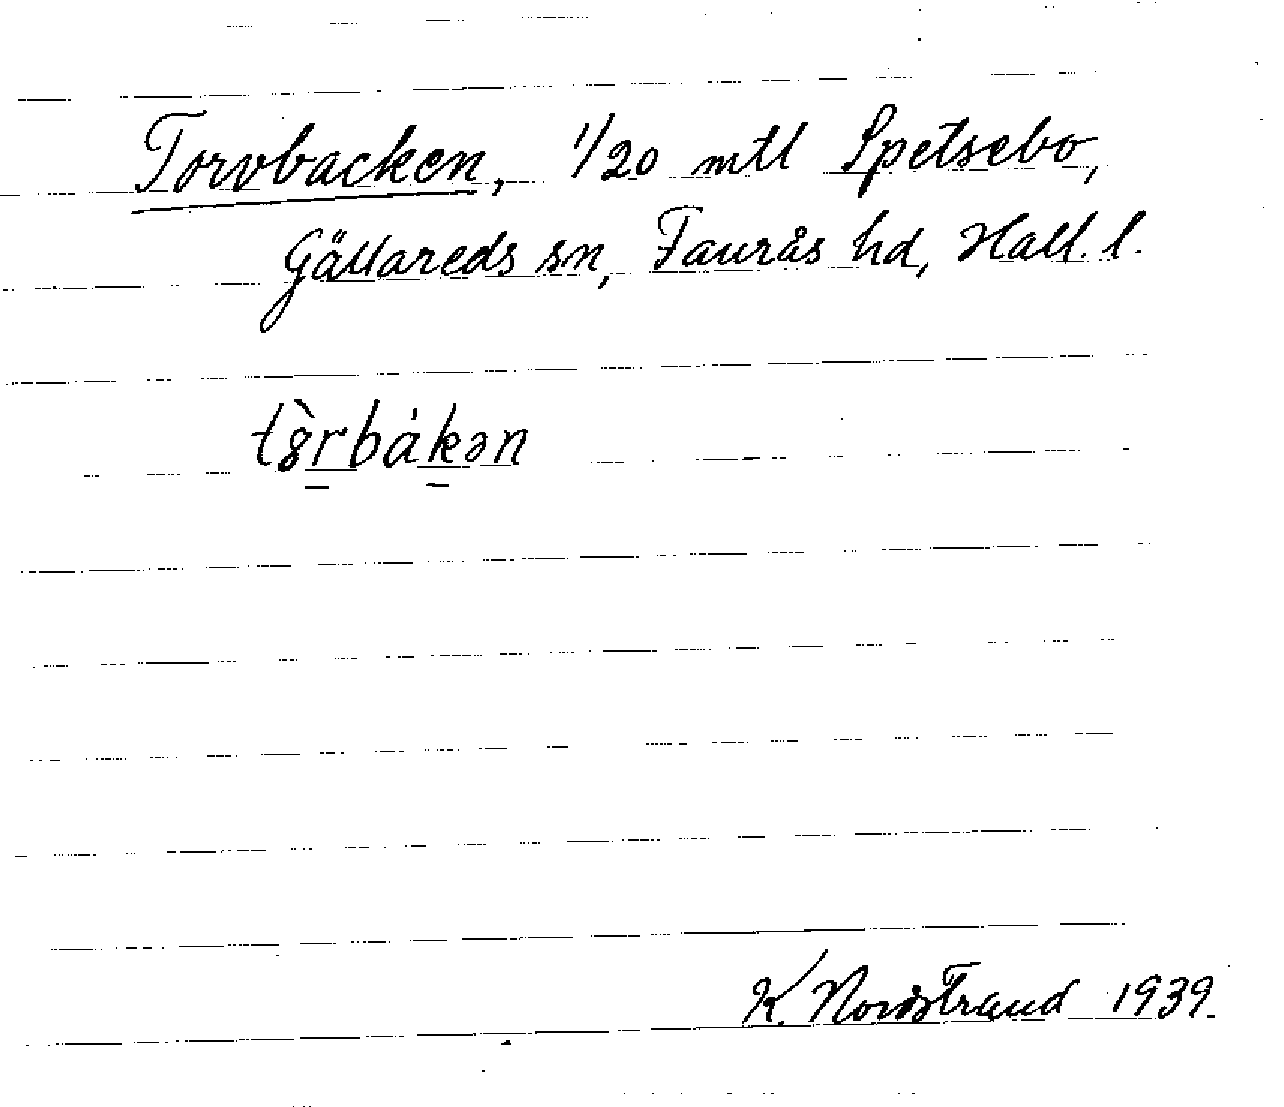 Torvbacken, 1/20 mtl Spetsebo,
Gällareds sn, Faurås hd, Hall. l.
K. Nordstrand 1939.